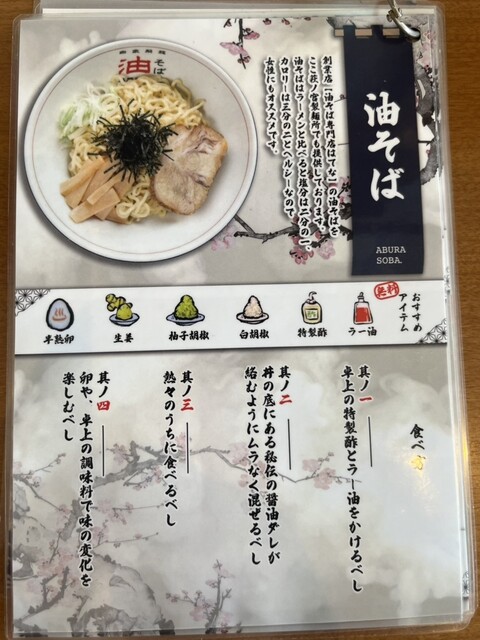 油そば
ABURA
SOBA
創業店「油そば専門店はてな」の油そばを
ここ萩ノ宮製麺所でも提供しております。
油そばはラーメンと比べると塩分は二分の一、
カロリーは三分の二とヘルシーなので
女性にもオススメです。
油
そば
おすすめ
アイテム
無料
ラー油
特製酢
白胡椒
柚子胡椒
生姜
半熟卵
食べ方
其ノ一
卓上の特製酢とラー油をかけるべし
其ノ二
丼の底にある秘伝の醤油ダレが
絡むようにムラなく混ぜるべし
其ノ三
熱々のうちに食べるべし
其ノ四
卵や、卓上の調味料で味の変化を
楽しむべし